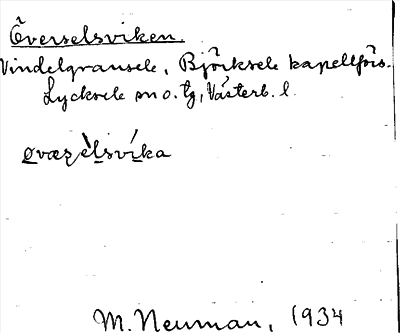 Överselsviken.
Vindelgransele, Björksele kapellförs.
Lycksele sn o. tg, Västerb. l.
øvæʐèlsvíka
M. Neuman, 1934